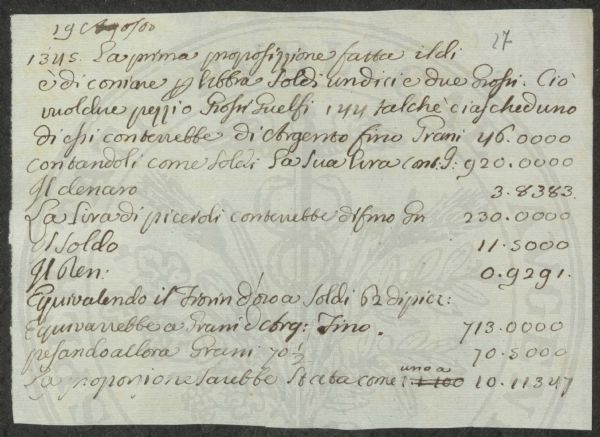 19 Agosto
27
1345. La prima proposizzione fatta il dì
è di coniare p libbra Soldi undici e due Grossi. Ciò
vuol dire pezzi Grossi Guelfi 144 talche ciascheduno
di essi conterrebbe di Argento fino Grani 46.0000
contandoli come Soldi La sua Lira cont. G: 920.0000
Il denaro 3.8383.
La Lira di piccioli conterrebbe di fino Gn 230.0000
Il Soldo 11.5000
Il Den: 0.9291.
Equivalendo il Fiorin d'oro a Soldi 62 di picc:
Equivarrebbe a Grani d'Arg: Fino. 713.0000
pesando allora Grani 70 ½ 70.5000
La proporzione sarebbe Stata come uno a 10.11347